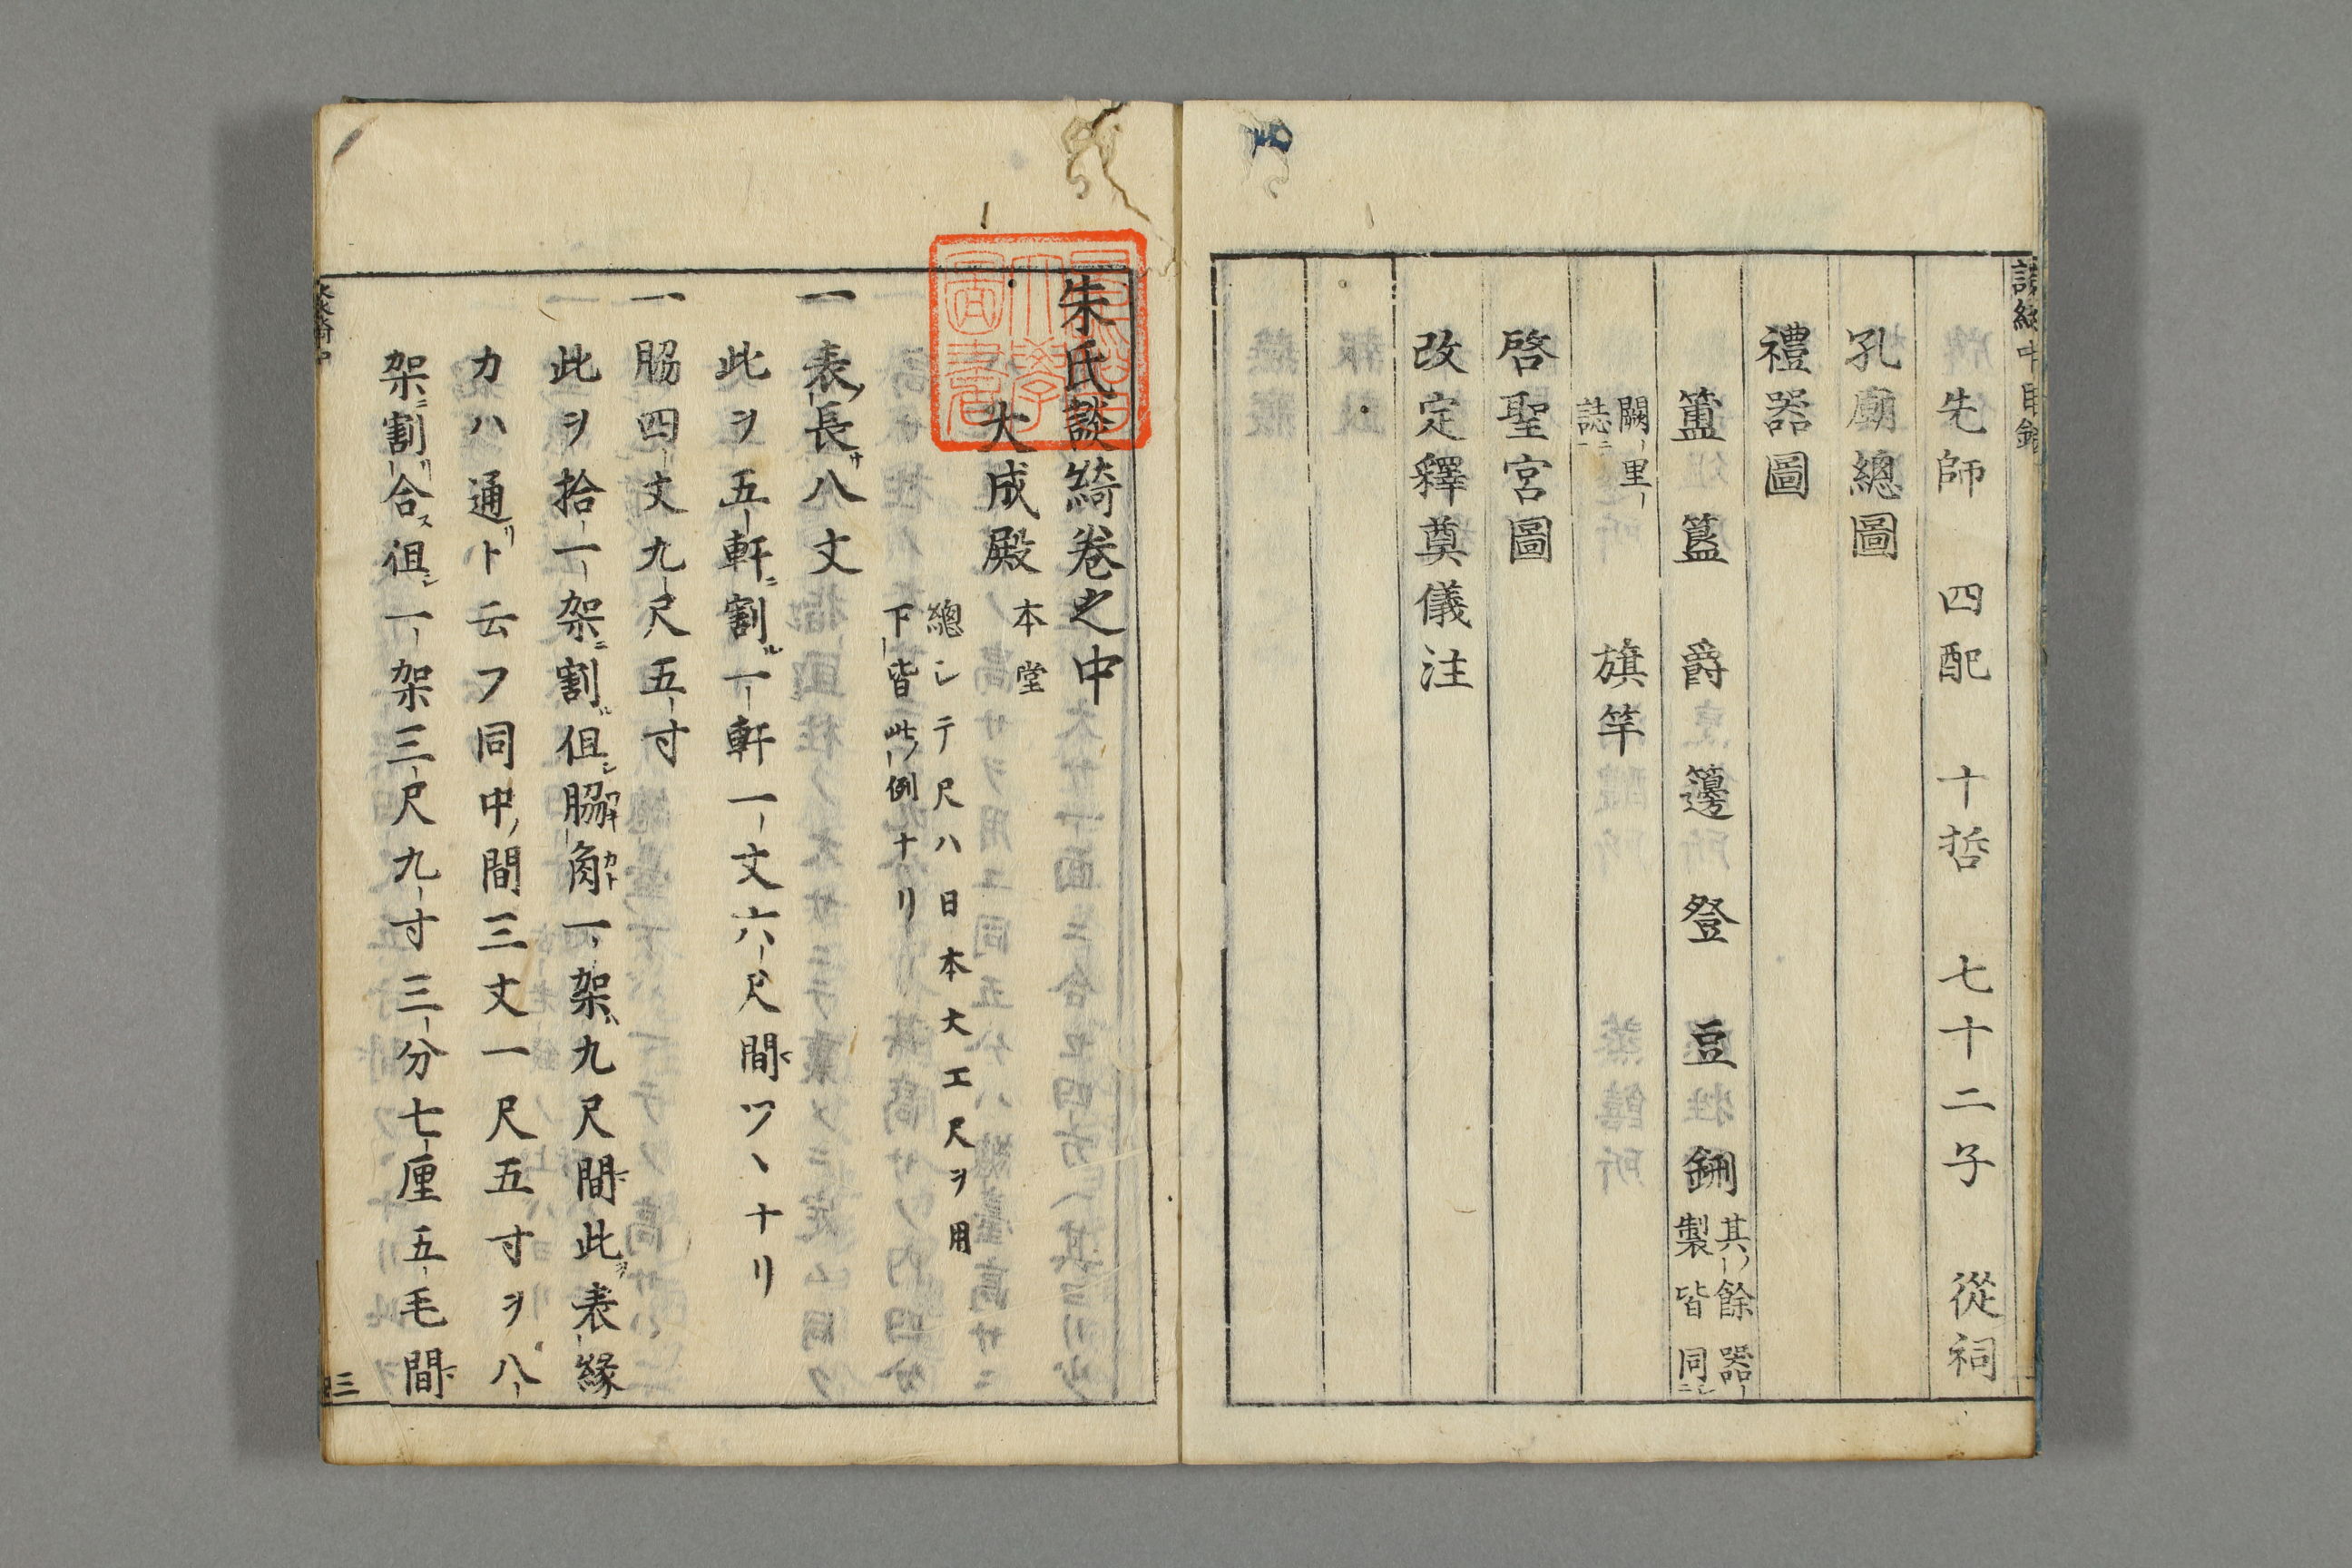 先師 四配 十哲 七十二子 從祠
孔廟總圖
禮器圖
簠 簋 爵 籩 豋 豆 鉶 其ノ餘器製皆同シニ
闕里誌ニ 旗竿
啓聖宮圖
改定釋奠儀注
朱氏談綺卷之中
大成殿 本堂
總シテ尺ハ日本大工尺ヲ用
下皆此ノ例ナリ
一 表ノ長サ八丈
此ヲ五軒ニ割ル一軒一丈六尺間ツヽナリ
一 脇四丈九尺五寸
此ヲ拾一架ニ割ル但シ脇ワキ角カト一架ハ九尺間此ヲ表縁
カハ通リト云フ同中ノ間三丈一尺五寸ヲ八
架ニ割リ合ス但シ一架三尺九寸三分七厘五毛間
三